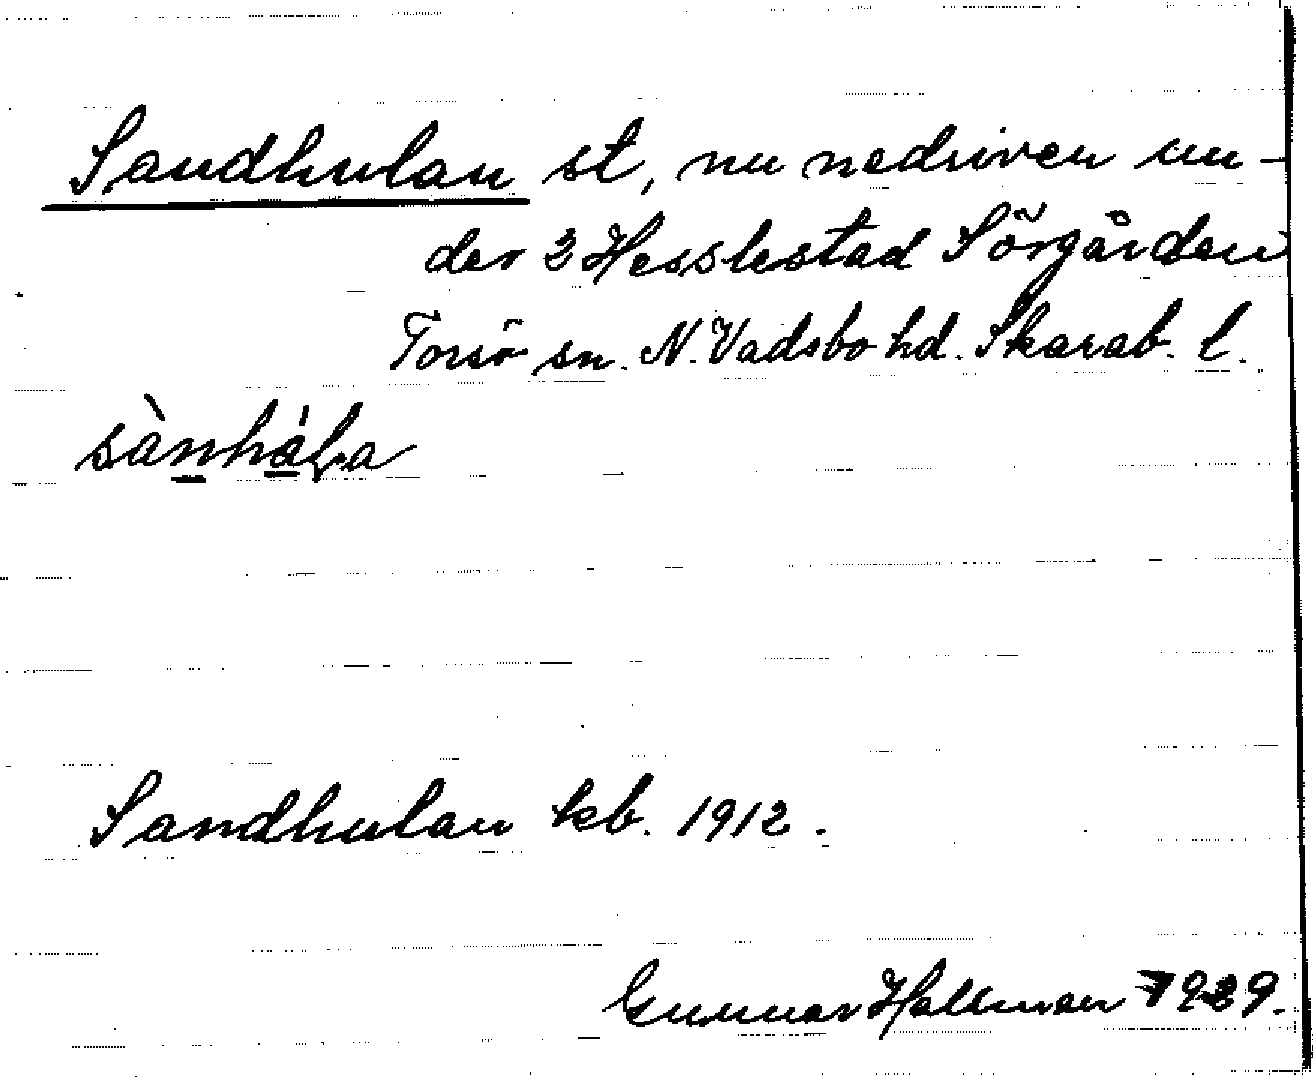 Sandhulan st, nu nedriven un-
der 3 Hesslestad Sörgården
Torsö sn. N. Vadsbo hd. Skarab. l.
sànhála
Sandhulan kb. 1912.
Gunnar Hallman 1929.